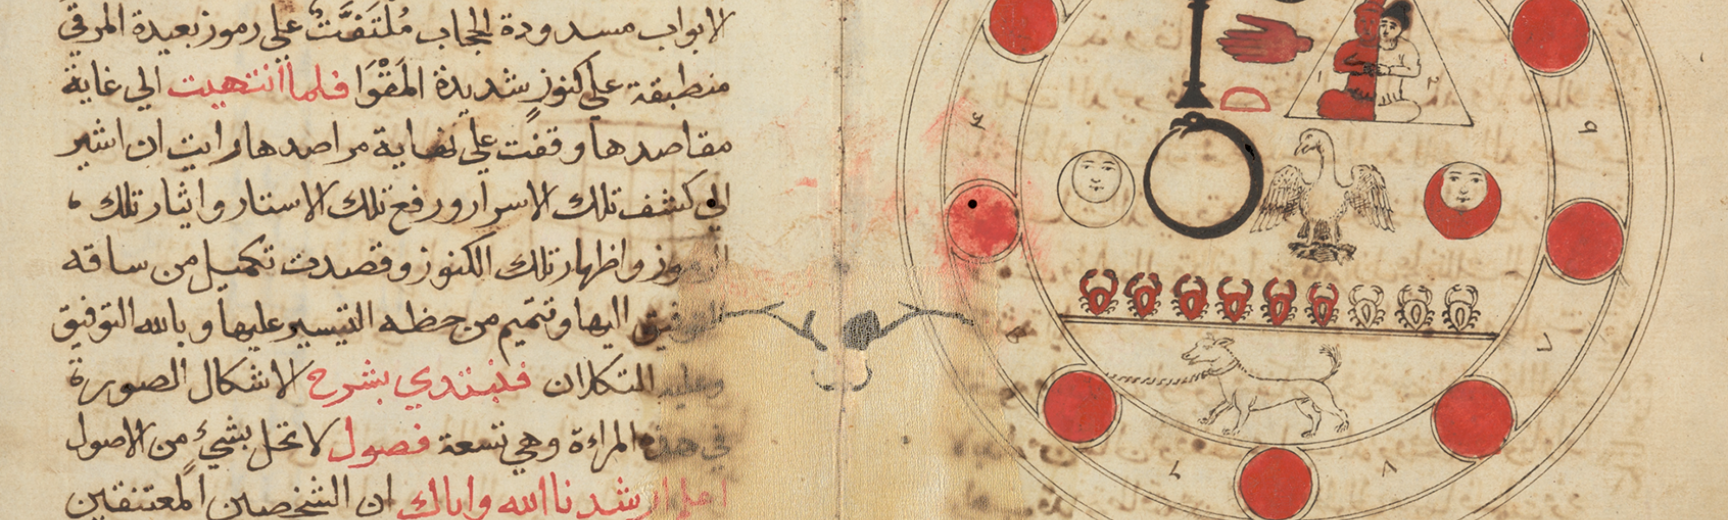 الابواب مسدودة الحجاب مُلتَفتَّت علي رموز بعيدة المرقي
منطبقة علي كنوز شديدة المَقْوَا فلما انتهيت الي غاية
مقاصدها وقفت علي نهاية مراصدها رايت ان اشير
الي كشف تلك الاسرار ورفع تلك الاستار واثار تلك
الرموز واظهار تلك الكنوز وقصدت تكميل من ساقه
التوفيق اليها وتتميم من حظه التيسير عليها وبالله التوفيق
وعليه التكلان فلنبتدي بشرح الاشكال الصورة
في هذه المراءة وهي تسعة فصول لا تخل بشيء من الاصول
اعلم ارشدنا الله واياك ان الشخصين المعتنقين
١ ٢
٤
٥
٦
٧
٨
٩